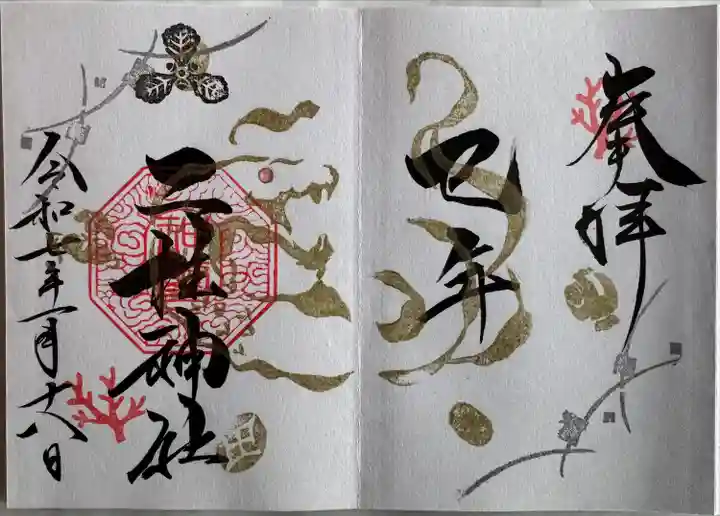 奉拝
巳年
三社神社
令和七年一月十八日